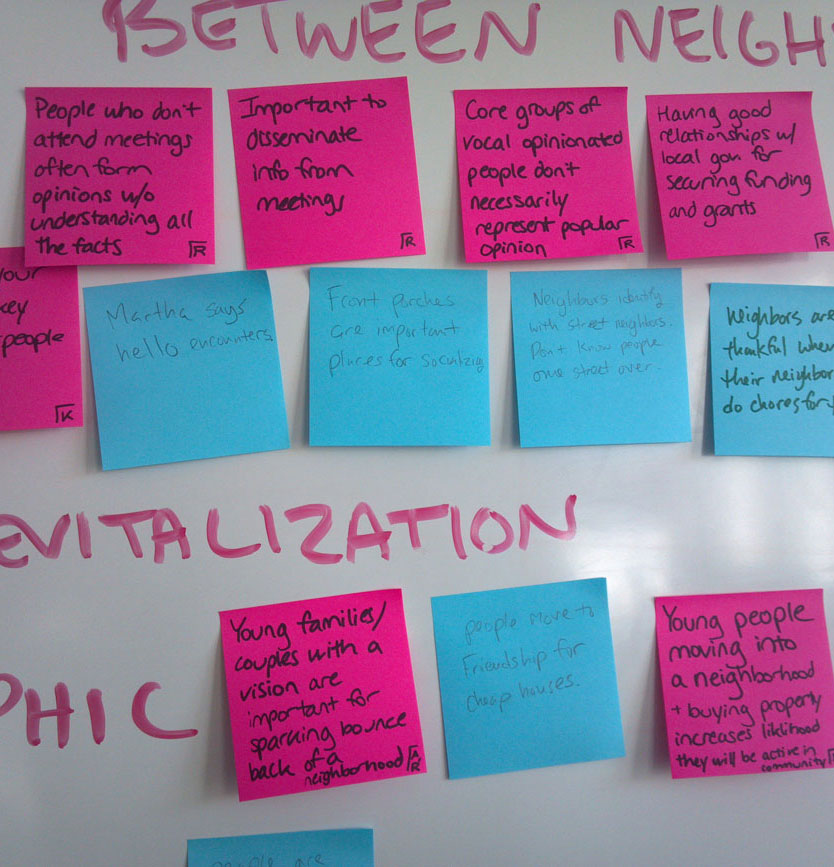 BETWEEN NEIGH
People who don't
attend meetings
often form
opinions w/o
understanding all
the facts
R
Important to
disseminate
info from
meetings
R
Core groups of
vocal opinionated
people don't
necessarily
represent popular
opinion
R
Having good
relationships w/
local gov for
securing funding
and grants
R
your
key
people
K
Martha says
hello encounters
Front porches
are important
places for socializing
Neighbors identify
with street neighbors.
Don't know people
one street over.
Neighbors are
thankful when
their neighbor
do chores for
EVITALIZATION
PHIC
Young families/
couples with a
vision are
important for
sparking bounce
back of a
neighborhood
AR
people move to
Friendship for
cheap houses.
Young people
moving into
a neighborhood
+ buying property
increases liklihood
they will be active in
community
people are